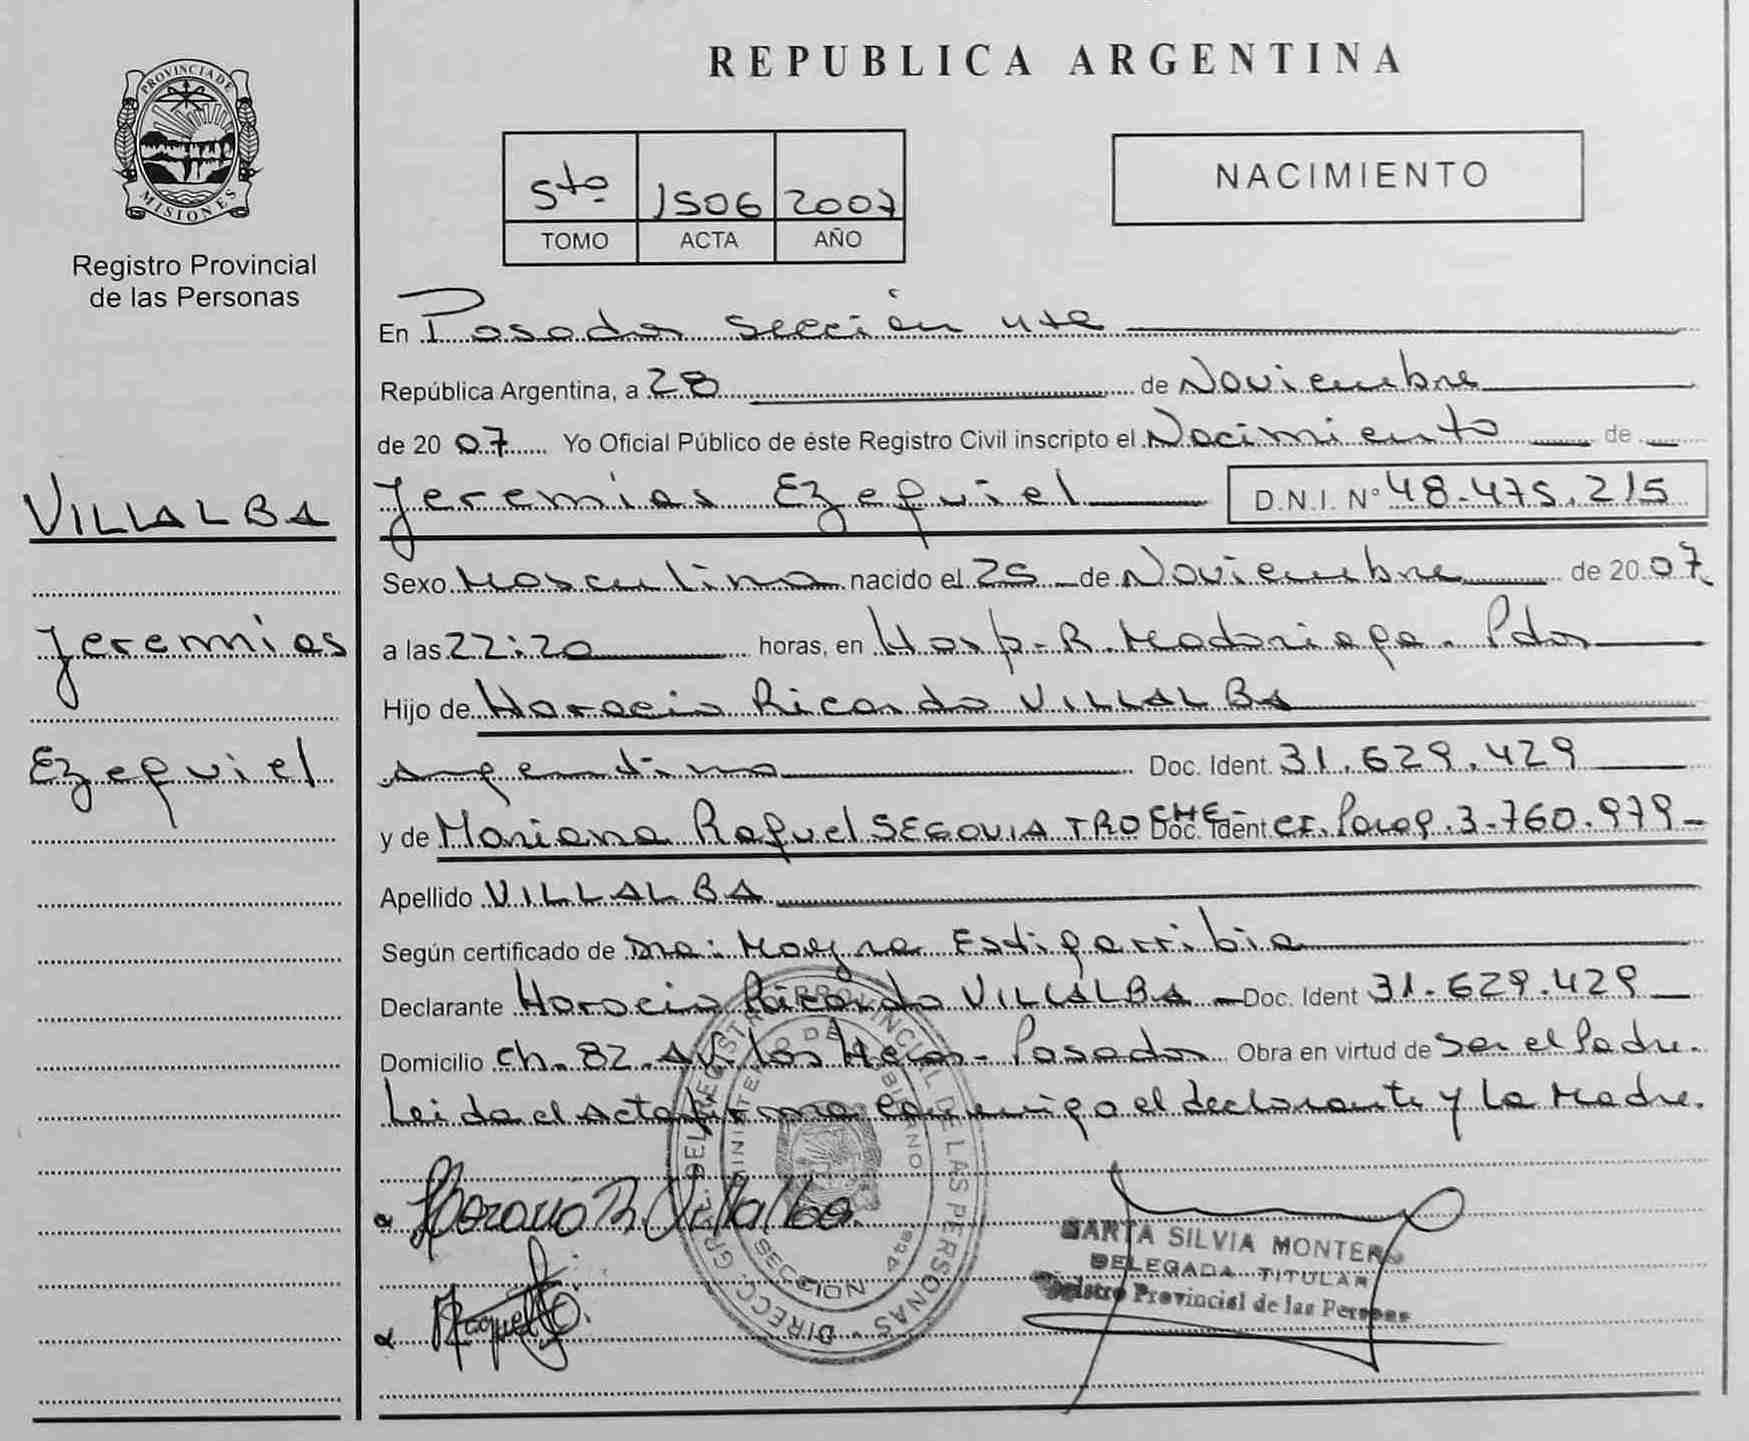 PROVINCIA DE
MISIONES
Registro Provincial
de las Personas
VILLALBA
Jeremias
Ezequiel
REPUBLICA ARGENTINA
5to 1506 2007
TOMO ACTA AÑO
NACIMIENTO
En Posadas Sección 4ta
República Argentina, a 28 de Noviembre
de 20 07 Yo Oficial Público de éste Registro Civil inscripto el Nacimiento de
Jeremias Ezequiel D.N.I. N° 48.475.215
Sexo Masculino nacido el 25 de Noviembre de 20 07
a las 22:20 horas, en Hosp. R. Madariaga. Pdas
Hijo de Horacio Ricardo VILLALBA
argentino Doc. Ident. 31.629.429
y de Mariana Raquel SEGOVIA TROCHE Doc. Ident CI. Parag. 3.760.979
Apellido VILLALBA
Según certificado de Dra: Mayra Estigarribia
Declarante Horacio Ricardo VILLALBA Doc. Ident 31.629.429
Domicilio Ch. 82. Posadas Obra en virtud de Ser el Padre.
Leida el Acta firma conmigo el declarante y la Madre.
Horacio R. Villalba
Raquel
DIRECC. GRAL. DEL REGISTRO PROVINCIAL DE LAS PERSONAS
MINISTERIO DE GOBIERNO
SECCION 4ta
MARTA SILVIA MONTERO
DELEGADA TITULAR
Registro Provincial de las Personas